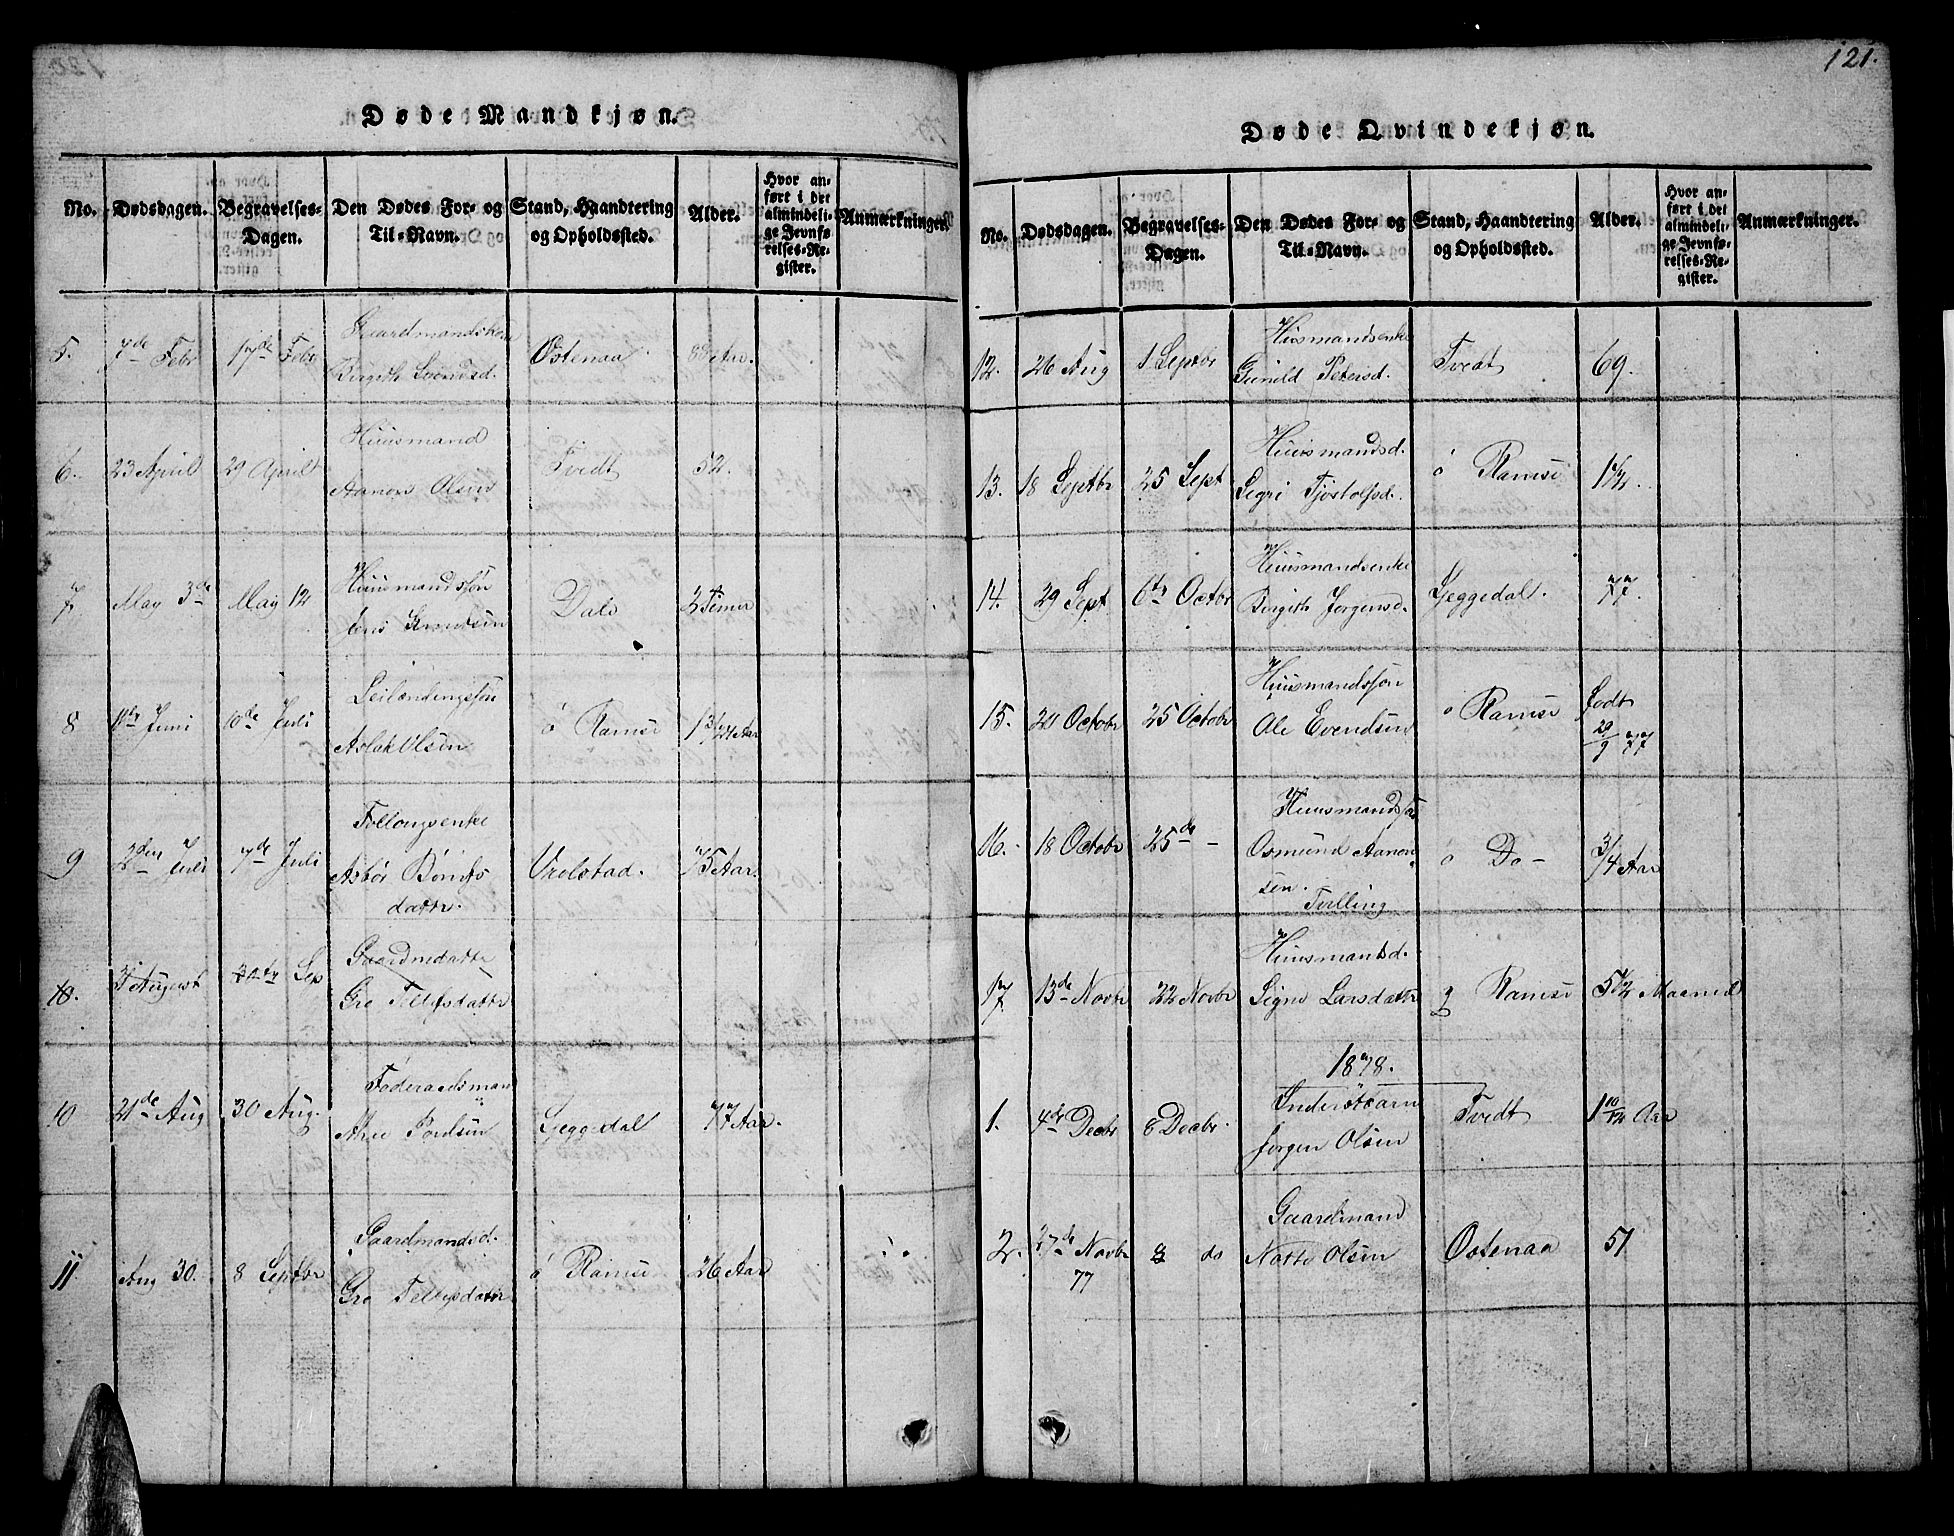 121.
Døde Mandkjøn.
No. Dødsdagen. Begravelses-Dagen. Den Dødes For- og Til-Navn. Stand, Haandtering og Opholdssted. Alder. Hvor anført i det almindelige Jevnførelses-Register. Anmærkninger.
5. 7de Febr 17de Febr Gaardmandskone
Birgith Svendsd. Østenaa. Aar.
6. 23 April 29 April Huusmand
Aanon Olsen Tvedt 52.
7 May 3de May 12 Huusmandssøn
Jens Knudsen Dale Timer
8 Juni 10de Juli Leilændingssøn
Aslak Olsen ö Ramse Aar
9 2den Juli 7de Juli Follougsenke
Asbör
datter. Vrolstad. 75 Aar.
10. August Sep Gaardmdatter
Gro Tellefsdatter
10 21de Aug 30 Aug. Föderaadsman
Geggedal 77 Aar.
11. Aug 30. 8 Septbr Gaardmandsd.
Gro Tellefsdatter ö Ramse 26 Aar
Døde Qvindekjøn.
No. Dødsdagen. Begravelses-Dagen. Den Dødes For- og Til-Navn. Stand, Haandtering og Opholdssted. Alder. Hvor anført i det almindelige Jevnførelses-Register. Anmærkninger.
12. 26 Aug 1 Septbr Huusmandsenke
Gunild Petersd. Tvedt 69.
13. 18 Septbr 25 Sept Huusmandsd.
Segri Tjostolfsd. ö Ramse 1½.
14. 29 Sept 6te Octbr Huusmandsenke
Birgith Jörgensd. Geggedal. 77.
15. 20 Octobr 25 Octobr Huusmandssøn
Ole Evendsen ö Ramse födt
29/9 77
16. 18 Octobr 25de - Huusmandssøn
Osmund Aanon-
sen.
Tvilling ö Do - 3/4 Aar
17. 13de Novbr 22 Novbr Huusmandsd.
Signe Larsdatter ö Ramse 5½ Maaned
1878.
1. 4de Decbr 8 Decbr.
Jörgen Olsen Tvedt 1 10/12 Aar
2. 27de Novbr
77 8 do Gaardmand
Notto Olsen Ostenaa 51